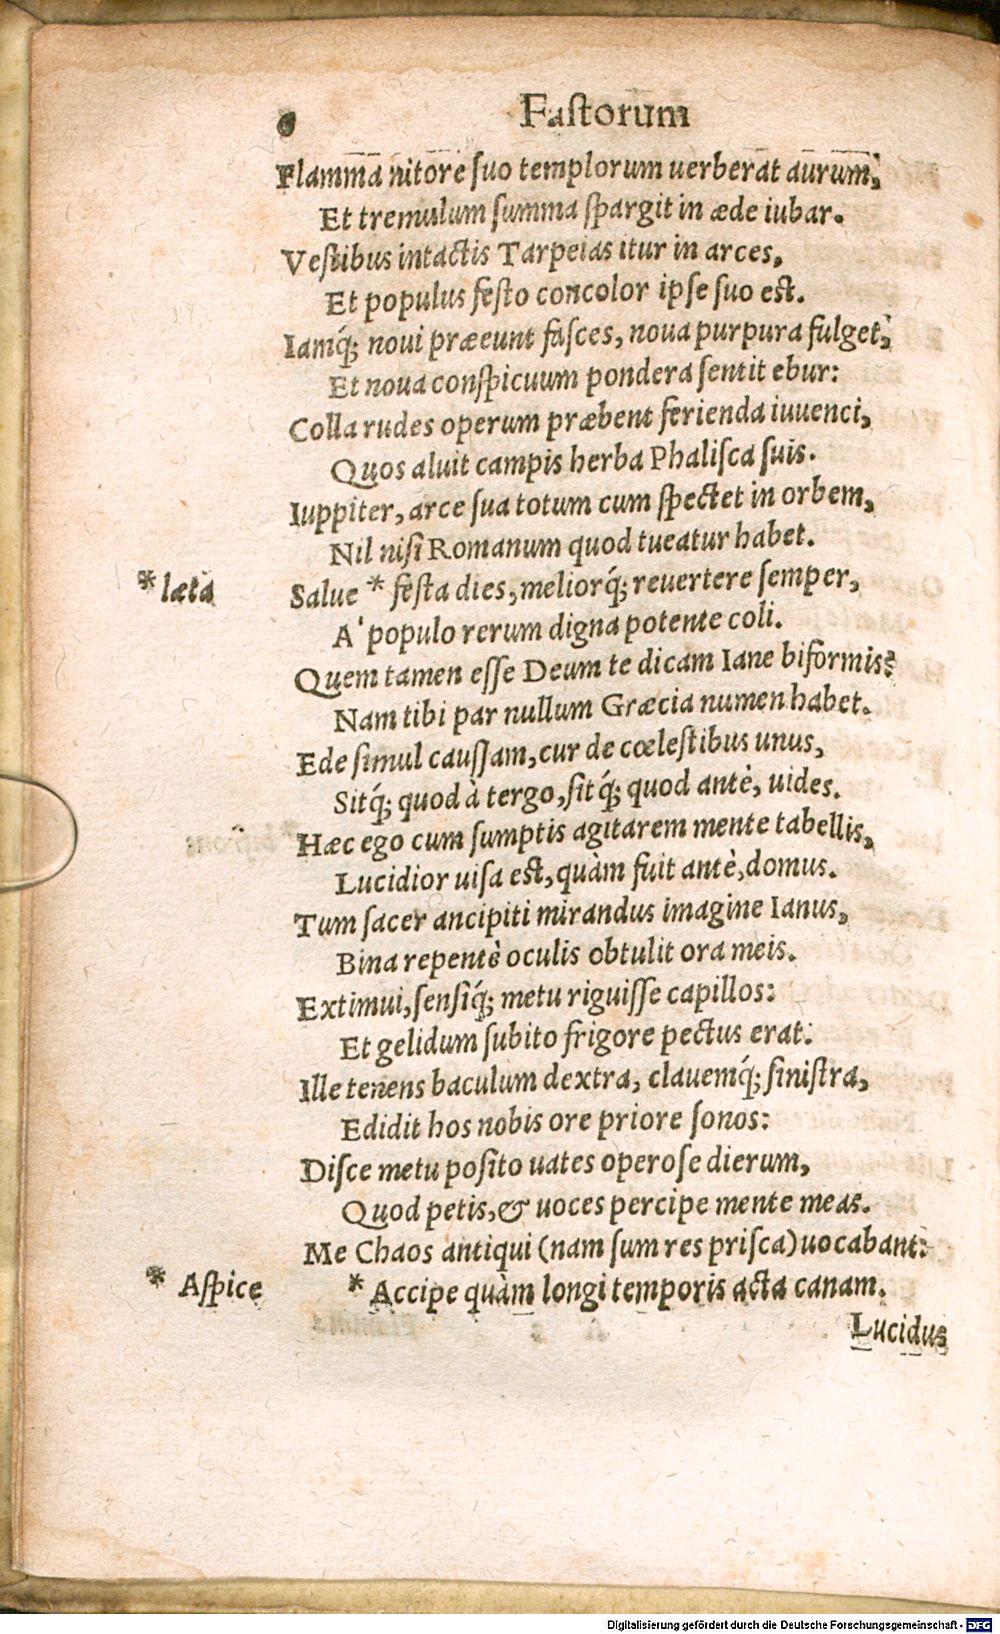 6 Fastorum
Flamma nitore suo templorum uerberat aurum,
Et tremulum summa spargit in æde iubar.
Vestibus intactis Tarpeias itur in arces,
Et populus festo concolor ipse suo est.
Iamq́; noui præeunt fasces, noua purpura fulget,
Et noua conspicuum pondera sentit ebur:
Colla rudes operum præbent ferienda iuuenci,
Quos aluit campis herba Phalisca suis.
Iuppiter, arce sua totum cum spectet in orbem,
Nil nisi Romanum quod tueatur habet.
* læta Salue * festa dies, meliorq́; reuertere semper,
A' populo rerum digna potente coli.
Quem tamen esse Deum te dicam Iane biformis?
Nam tibi par nullum Græcia numen habet.
Ede simul caussam, cur de cœlestibus unus,
Sitq́; quod à tergo, sitq́; quod antè, uides.
Hæc ego cum sumptis agitarem mente tabellis,
Lucidior uisa est, quàm fuit antè, domus.
Tum sacer ancipiti mirandus imagine Ianus,
Bina repentè oculis obtulit ora meis.
Extimui, sensiq́; metu riguisse capillos:
Et gelidum subito frigore pectus erat.
Ille tenens baculum dextra, clauemq́; sinistra,
Edidit hos nobis ore priore sonos:
Disce metu posito uates operose dierum,
Quod petis, & uoces percipe mente meas.
Me Chaos antiqui (nam sum res prisca) uocabant:
* Aspice * Accipe quàm longi temporis acta canam.
Lucidus
Digitalisierung gefördert durch die Deutsche Forschungsgemeinschaft - DFG